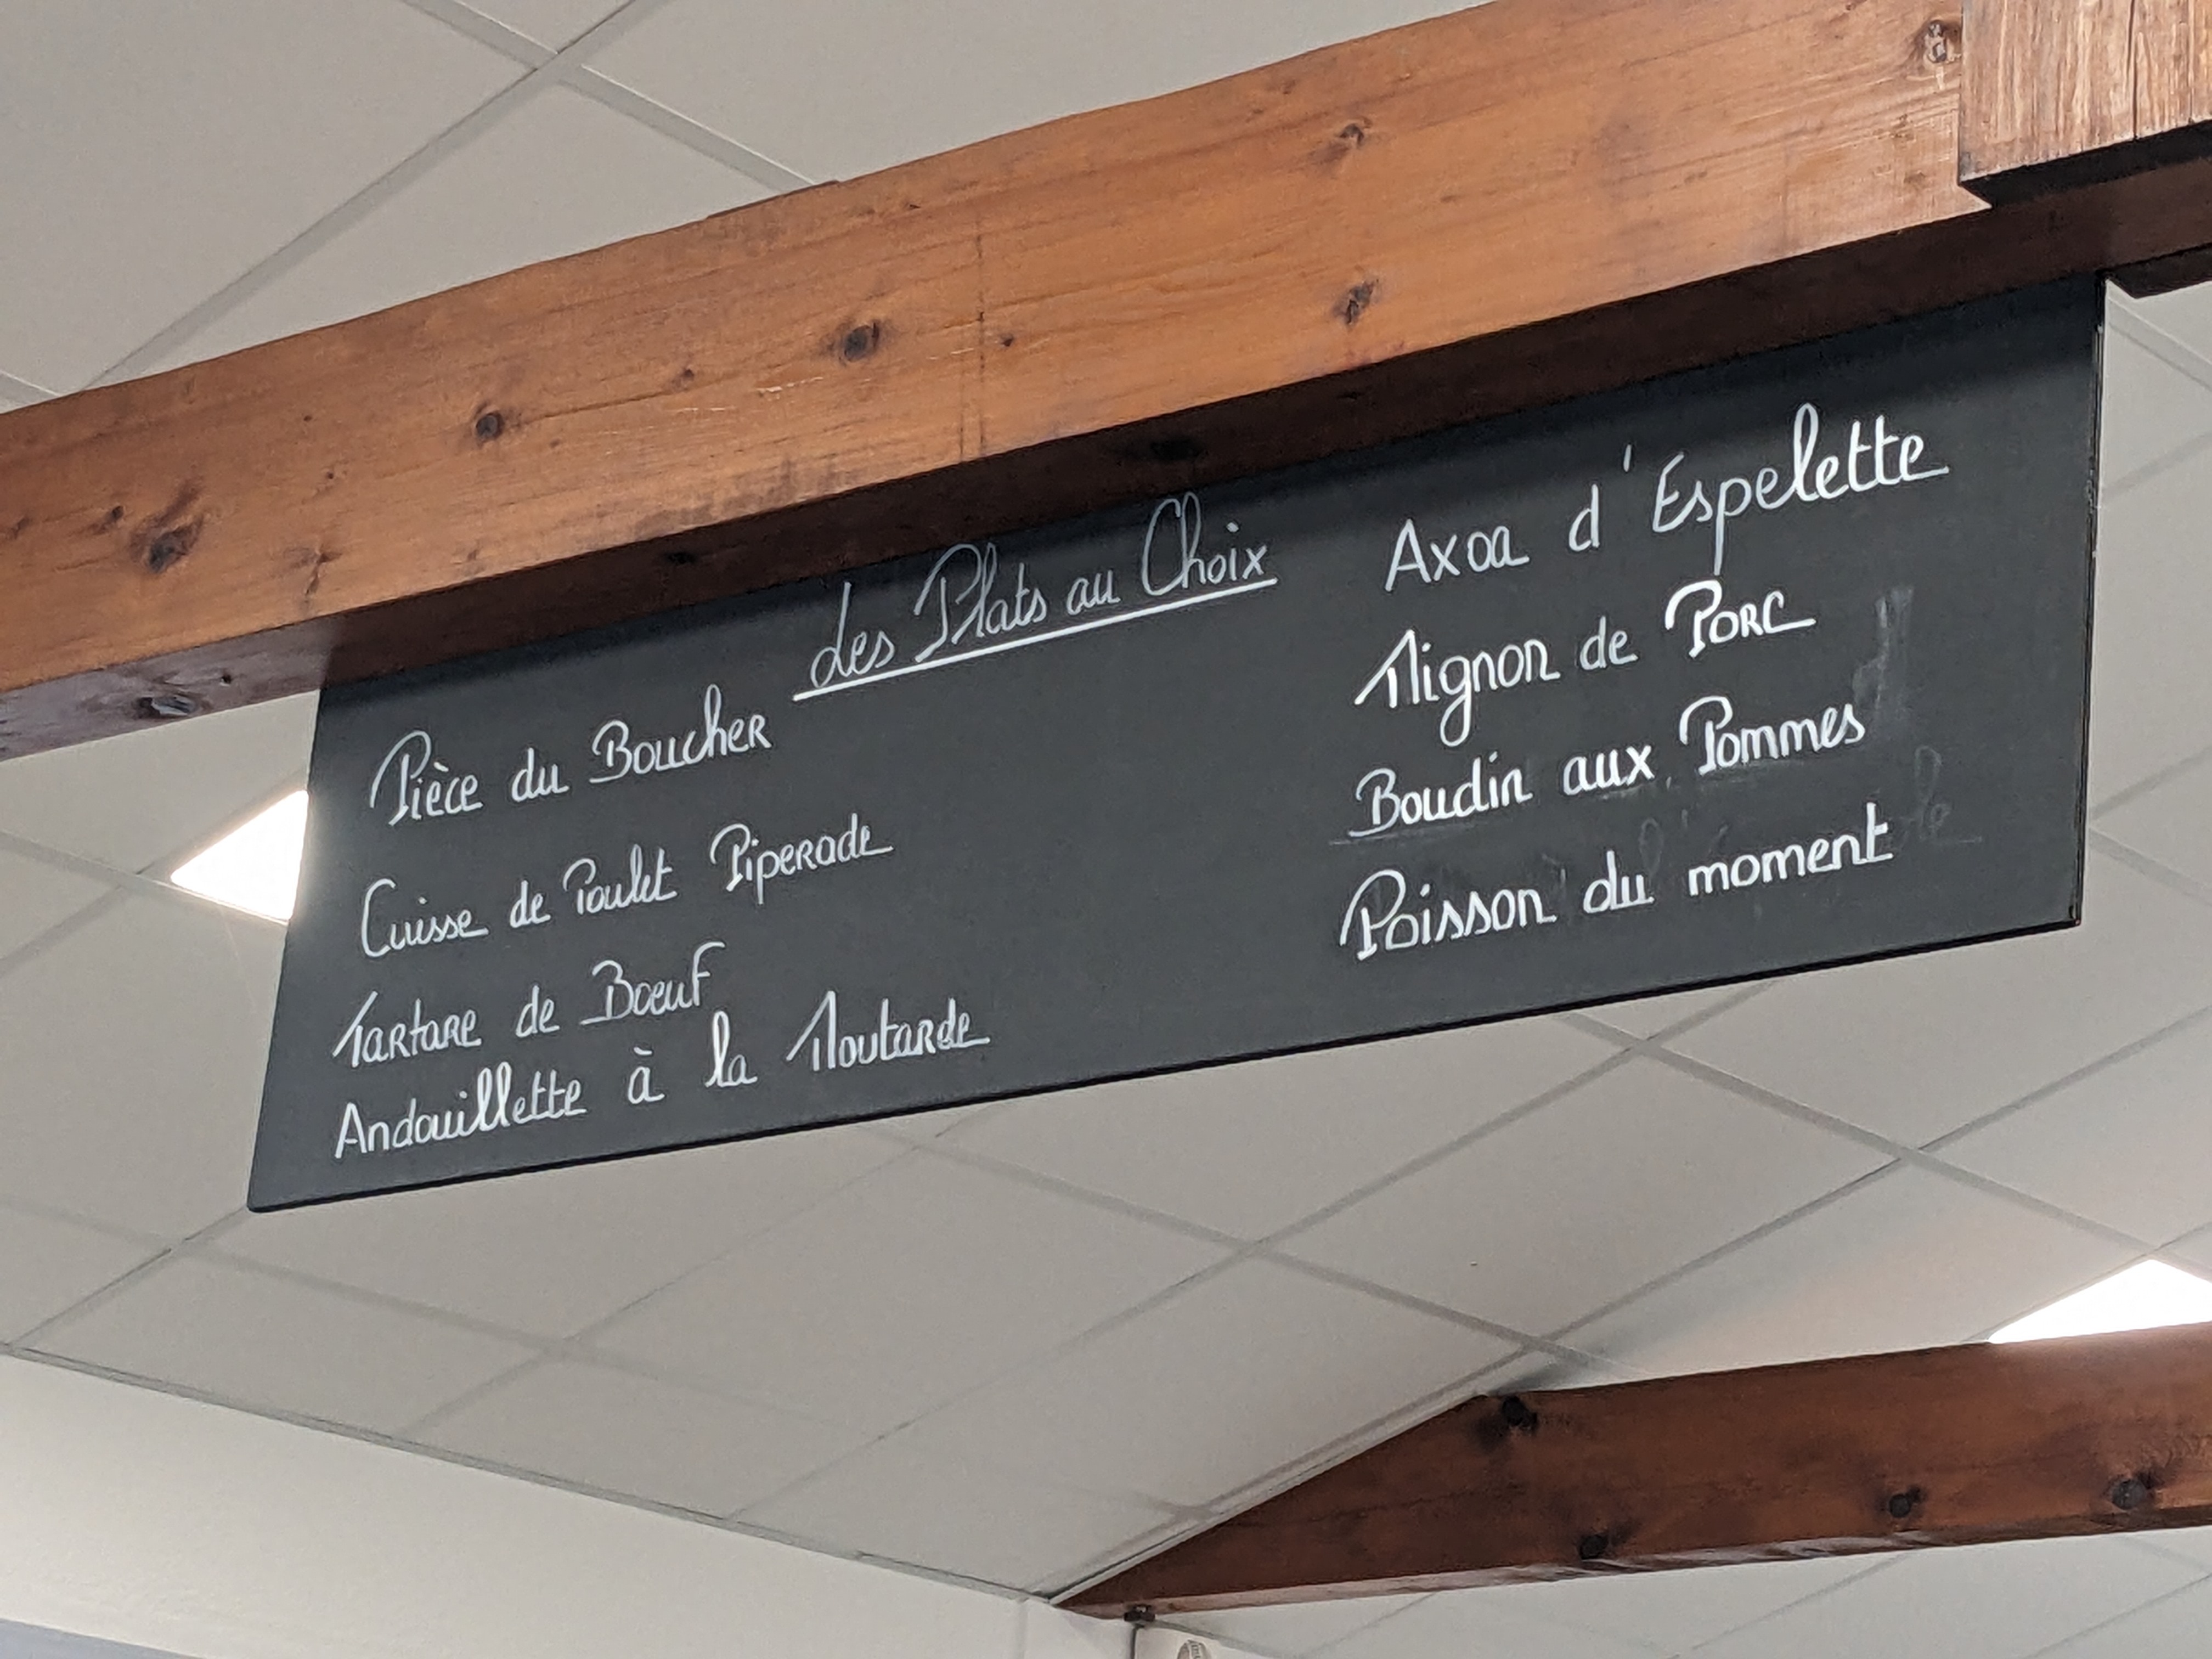 des Plats au Choix
Pièce du Boucher
Cuisse de Poulet Piperade
Tartare de Boeuf
Andouillette à la Moutarde
Axoa d'Espelette
Mignon de Porc
Boudin aux Pommes
Poisson du moment